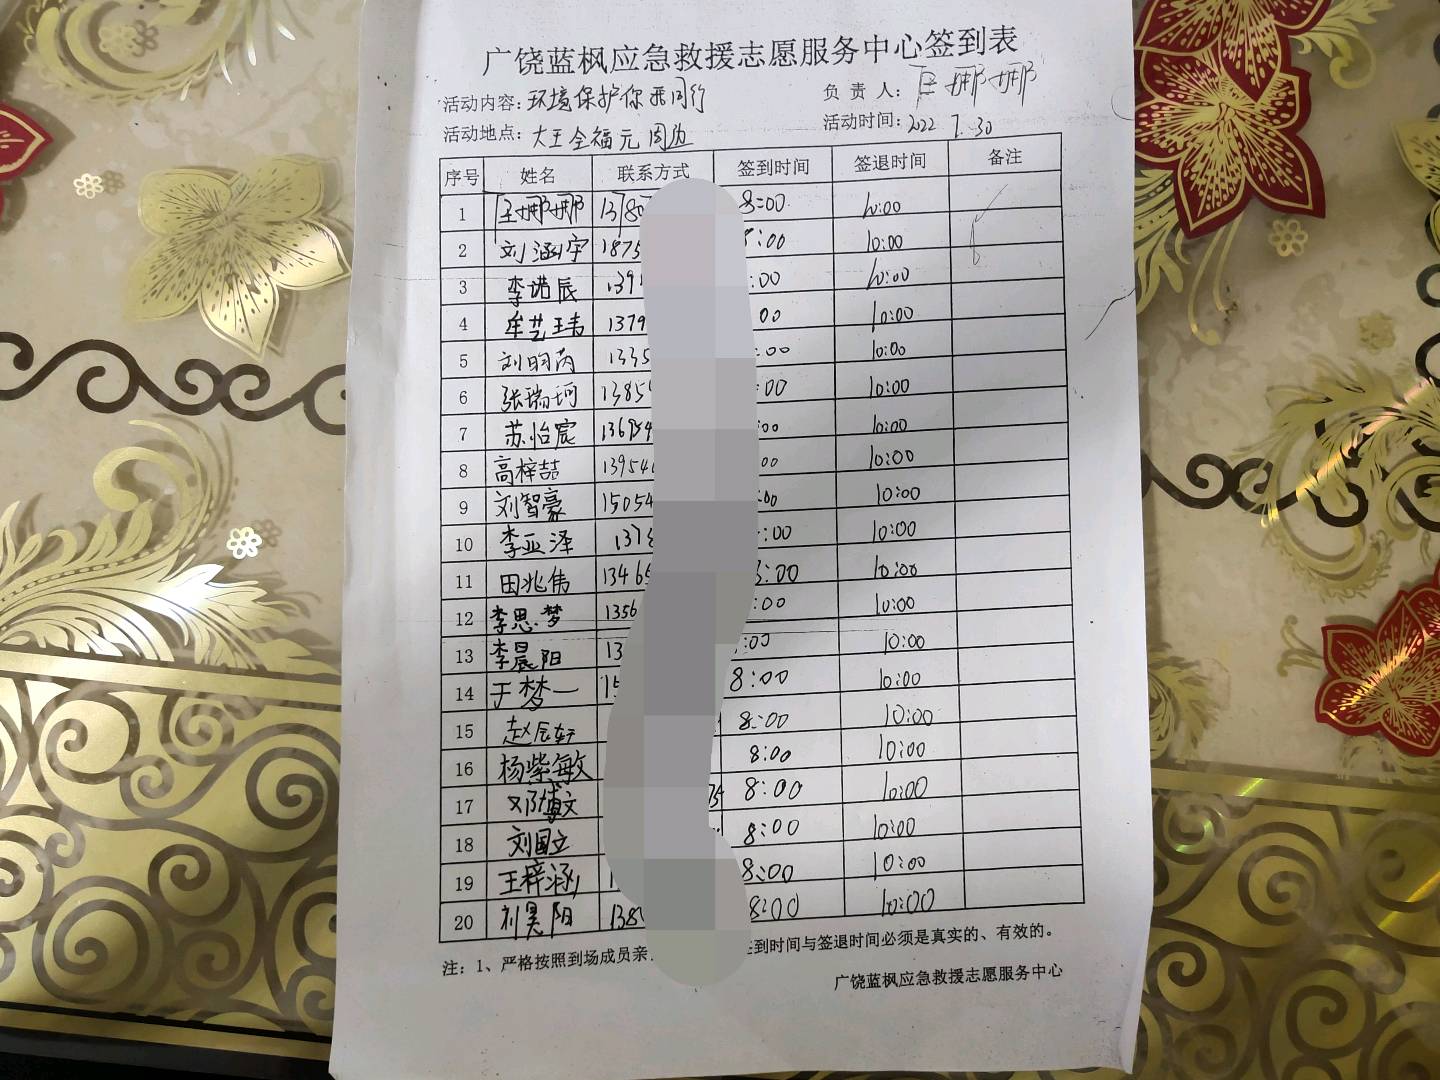 广饶蓝枫应急救援志愿服务中心签到表
活动内容：环境保护你我同行 负责人：王娜娜
活动地点：大王全福元周边 活动时间：2022 7.30
序号 姓名 联系方式 签到时间 签退时间 备注
1 王娜娜 13780 8:00 10:00
2 刘涵宇 1875 8:00 10:00
3 李诺辰 139 :00 10:00
4 牟艺玮 1379 00 10:00
5 刘昀芮 1335 :00 10:00
6 张瑞珂 1385 :00 10:00
7 苏怡宸 136954 :00 10:00
8 高梓喆 13954 00 10:00
9 刘智豪 15054 :00 10:00
10 李亚泽 1378 :00 10:00
11 田兆伟 13465 8:00 10:00
12 李思梦 1356 :00 10:00
13 李晨阳 13 :00 10:00
14 于梦一 15 8:00 10:00
15 赵辰轩 8:00 10:00
16 杨紫敏 8:00 10:00
17 邓博文 75 8:00 10:00
18 刘国立 8:00 10:00
19 王梓涵 1 8:00 10:00
20 刘昊阳 138 8:00 10:00
注：1、严格按照到场成员亲 签到时间与签退时间必须是真实的、有效的。
广饶蓝枫应急救援志愿服务中心